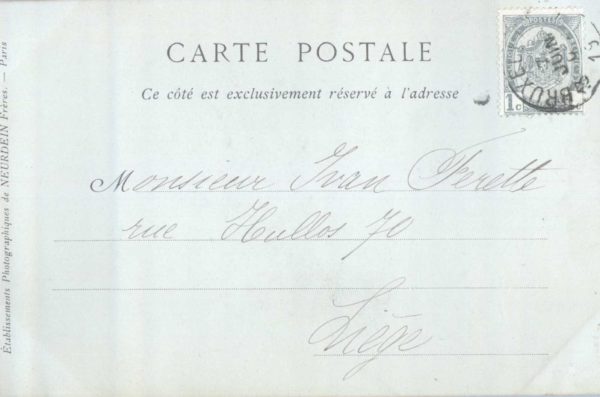 CARTE POSTALE
Ce côté est exclusivement réservé à l'adresse
Monsieur Ivan Ferette
rue Hullos 70
Liège
Établissements Photographiques de NEURDEIN Frères. — Paris
POSTES
1c
BRUXEL
JUIN